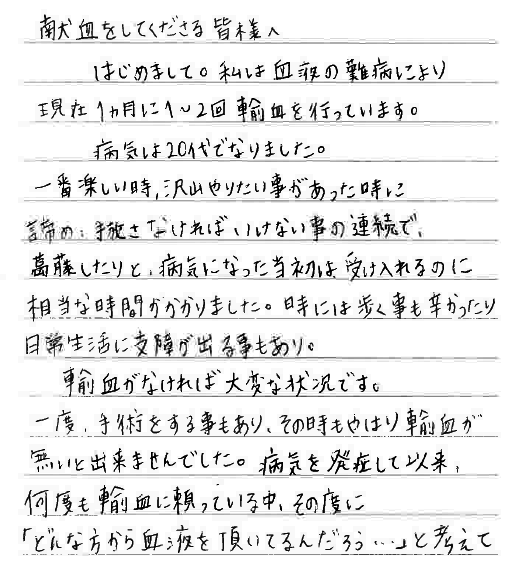 献血をしてくださる皆様へ
はじめまして。私は血液の難病により
現在1ヵ月に1～2回輸血を行っています。
病気は20代でなりました。
一番楽しい時、沢山やりたい事があった時に
諦め、手放さなければいけない事の連続で、
葛藤したりと、病気になった当初は受け入れるのに
相当な時間がかかりました。時には歩く事も辛かったり
日常生活に支障が出る事もあり。
輸血がなければ大変な状況です。
一度、手術をする事もあり、その時もやはり輸血が
無いと出来ませんでした。病気を発症して以来、
何度も輸血に頼っている中、その度に
「どんな方から血液を頂いてるんだろう・・・」と考えて